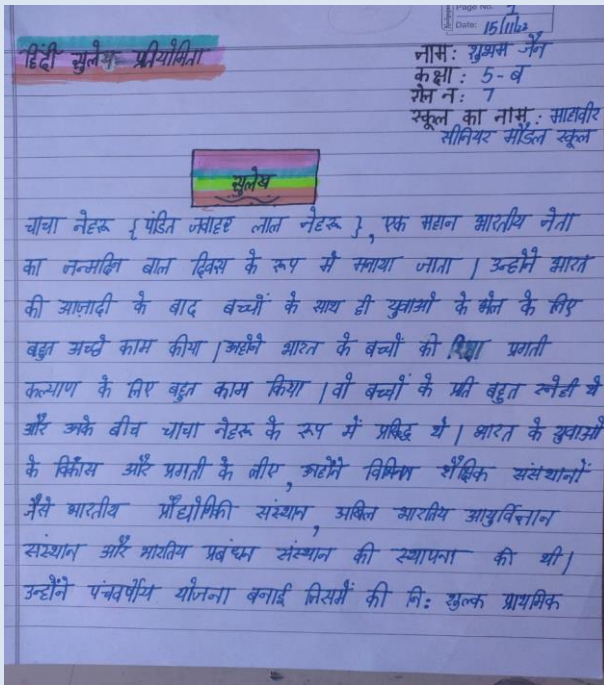 Page No. 1
Date: 15/11/22
हिंदी सुलेख प्रतियोगिता
नाम : शुभम जैन
कक्षा : 5-ब
रोल न : 7
स्कूल का नाम : माहावीर
सीनियर मौडल स्कूल
सुलेख
चाचा नेहरू {पंडित जवाहर लाल नेहरू}, एक महान भारतीय नेता
का जन्मदिन बाल दिवस के रूप मे मनाया जाता | उन्होने भारत
की आज़ादी के बाद बच्चों के साथ ही युवाओ के भले के लिए
बहुत अच्छे काम कीया | उन्होने भारत के बच्चों की शिक्षा प्रगती
कल्याण के लिए बहुत काम किया | वो बच्चों के प्रति बहुत स्नेही थे
और उनके बीच चाचा नेहरू के रूप में प्रसिद्ध थे | भारत के युवाओं
के विकास और प्रगती के लीए, उन्होंने विभिन्न शैक्षिक संसथानों
जैसे भारतीय प्रौद्योगिकी संस्थान, अखिल भारतिय आयुर्विज्ञान
संस्थान और भारतिय प्रबंधन संस्थान की स्थापना की थी |
उन्होंने पंचवर्षीय योजना बनाई जिसमें की नि: शुल्क प्राथमिक